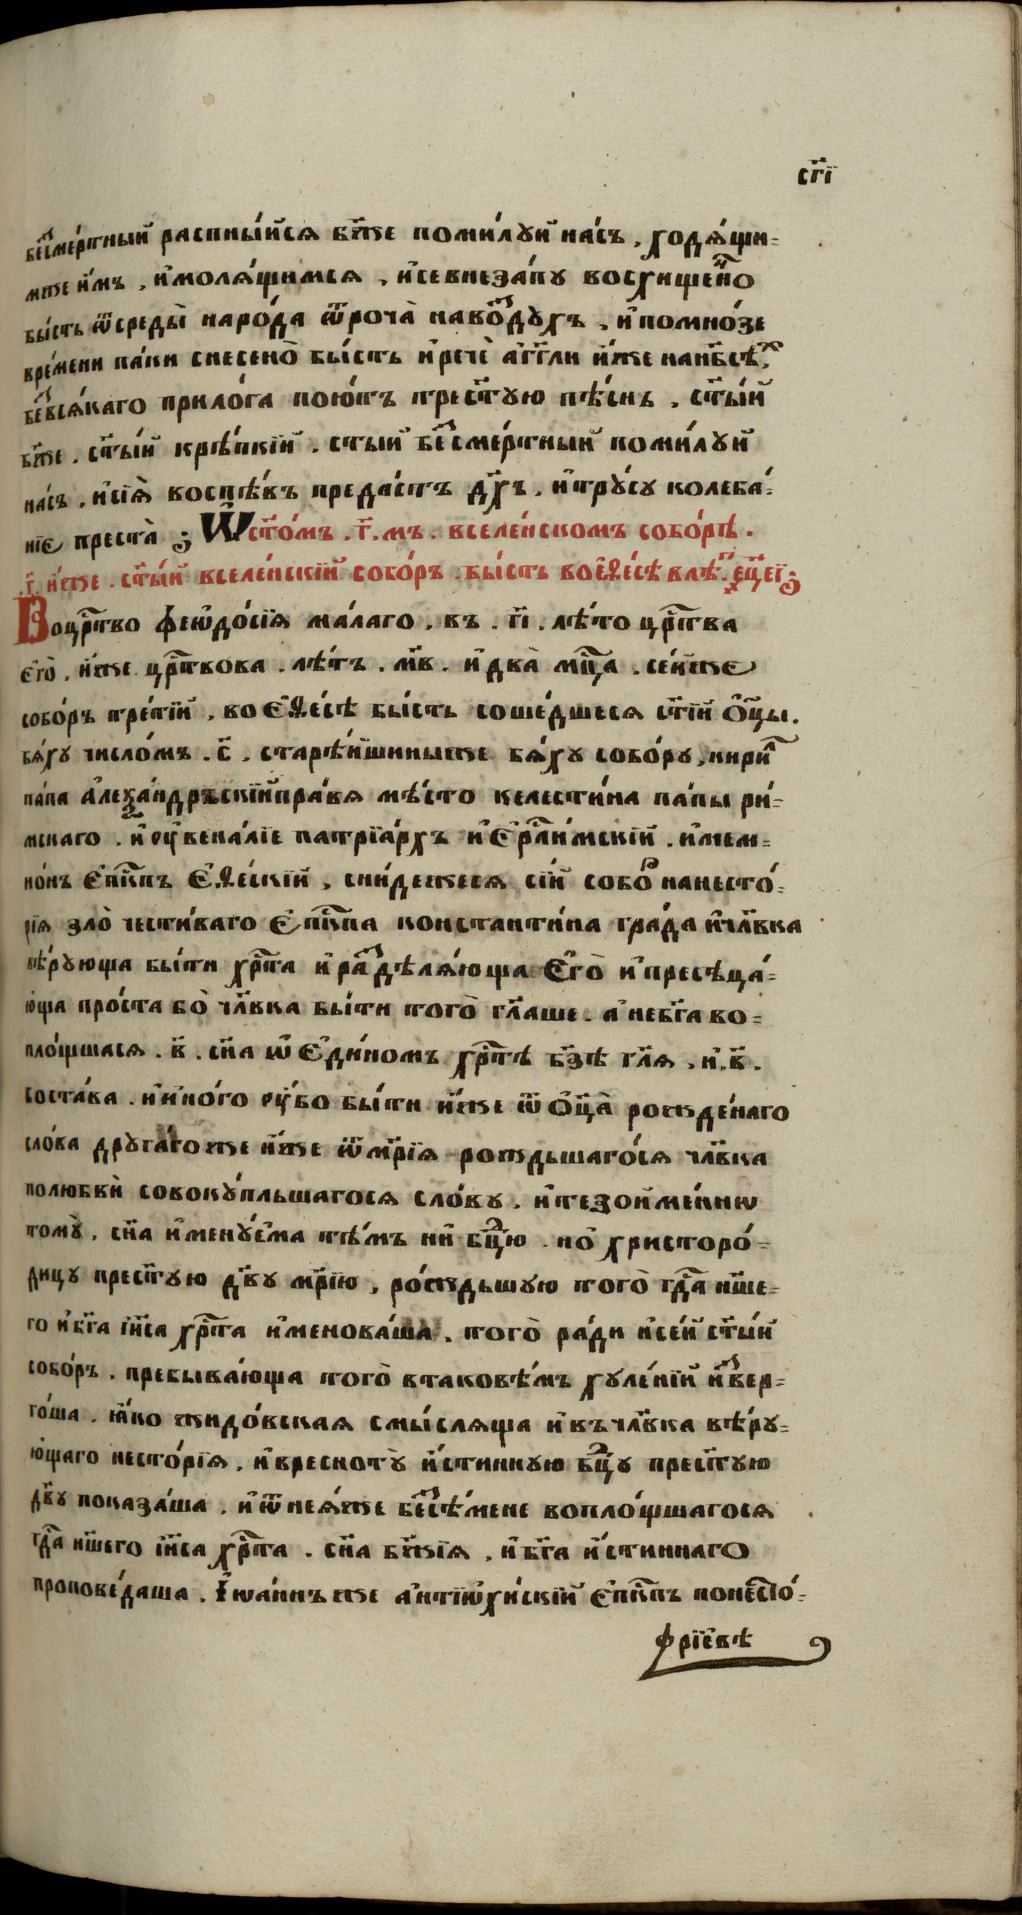 сг҃і
бе҆смє́ртный распны́йсѧ бж҃е поми́лꙋй на́съ, ходѧ́щи=
мже и҆́мъ, и҆молѧ́щимсѧ, и҆се внеза́пꙋ восхище́нно
бы́сть ѿ среды̀ наро́да ѿроча̀ навоздꙋхъ, и҆ помно́зе
вре́мени па́ки снесено̀ бы́сть и҆ речѐ а҆́гг҃ли и҆́же нанб҃сѣ́хъ
безвсѧ́каго прило́га пою́тъ трест҃ꙋю пѣ́снь. ст҃ы́й
бж҃е. ст҃ы́й крѣ́пкїй. ст҃ый безсме́ртный поми́лꙋй
на́съ, и҆сїѧ̀ воспѣ́въ преда́стъ дх҃ъ, и҆трꙋ́сꙋ колеба́=
нїе преста̀ ; Ѿ ст҃о́мъ. г҃.мъ. вселе́нскомъ собо́рѣ.
г҃. и҆́же. ст҃ы́й вселе́нскїй собо́ръ. бы́сть во є҆ѳе́сѣ влѣт. ҂є҃ц҃еі;
Воцр҃тво феѡдо́сїѧ ма́лаго, въ. гі҃. лѣ́то цр҃тва
є҆го̀. и҆́же цр҃твова. лѣ́тъ. м҃в. и҆ два̀ мц҃а. се́йже
собо́ръ тре́тїй, во є҆ѳе́сѣ бы́сть соше́дшесѧ ст҃і́й ѻ҆ц҃ы.
бѧ́хꙋ число́мъ. с҃. старѣ́йшиныже бѧ́хꙋ собо́рꙋ, кири́л
папа а҆леѯа́ндръскїй правѧ мѣ́сто келести́на па́пы ри́=
мскаго. и҆ ѹ҆вена́лїе патрїа́рхъ и҆є҆рл҃и́мскїй. и҆мем=
но́нъ є҆пк҃пъ є҆ѳе́скїй, сни́дежесѧ сі́й собо́р нанесто́=
рїѧ зло̀ чести́ваго є҆пк҃па константи́на гра́да и҆чл҃вка
вѣ́рꙋюща бы́ти хр҃та и҆ раздѣлѧ́юща є҆го̀ и҆ пресѣца́=
юща про́ста бо̀ чл҃вка бы́ти того̀ гл҃аше. а҆ не бг҃а во=
пло́щшасѧ. в҃. сн҃а ѡ є҆ди́номъ хр҃тѣ́ бз҃ѣ гл҃ѧ, и҆. в҃.
соста́ва. и҆ и҆но́го ѹ҆́бо бы́ти и҆́же ѿ ѻ҆ц҃а̀ рожде́наго
сло́ва дрꙋга́гоже и҆́же ѿ мр҃і́ѧ рождьшаго́сѧ чл҃вка
полюбвѝ совокꙋ́пльшагосѧ сло́вꙋ, и҆ тезоиме́ннѡ
томꙋ̀, сн҃а и҆менꙋ́ема тѣ́мъ ни бц҃ю. но҆ христоро́=
дицꙋ прест҃ꙋю дв҃ꙋ мр҃і́ю, ро́ждьшꙋю того̀ гд҃а нш҃е=
го и҆ бг҃а і҆и҃са хр҃та и҆менова́ша, того̀ ра́ди и҆ се́й ст҃ы́й
собо́ръ. пребыва́юща того̀ втаковѣ́мъ хꙋле́нїй и҆звер=
го́ша. ꙗ҆́ко жидо́вская смы́слѧща и҆ въ чл҃вка вѣ́рꙋ=
ющаго несто́рїѧ, и҆ вреснотꙋ̀ и҆́стиннꙋю бц҃ꙋ прест҃ꙋю
дв҃ꙋ показа́ша, и҆ ѿ неѧ́же безсѣ́мене вопло́щшагосѧ
гд҃а нш҃его і҆и҃са хр҃та. сн҃а бж҃їѧ, и҆ бг҃а и҆́стиннаго
пропове́даша. І҆ѡа́ннъ же а҆нтїѡхи́скїй є҆пк҃пъ понесто́=
рїевѣ